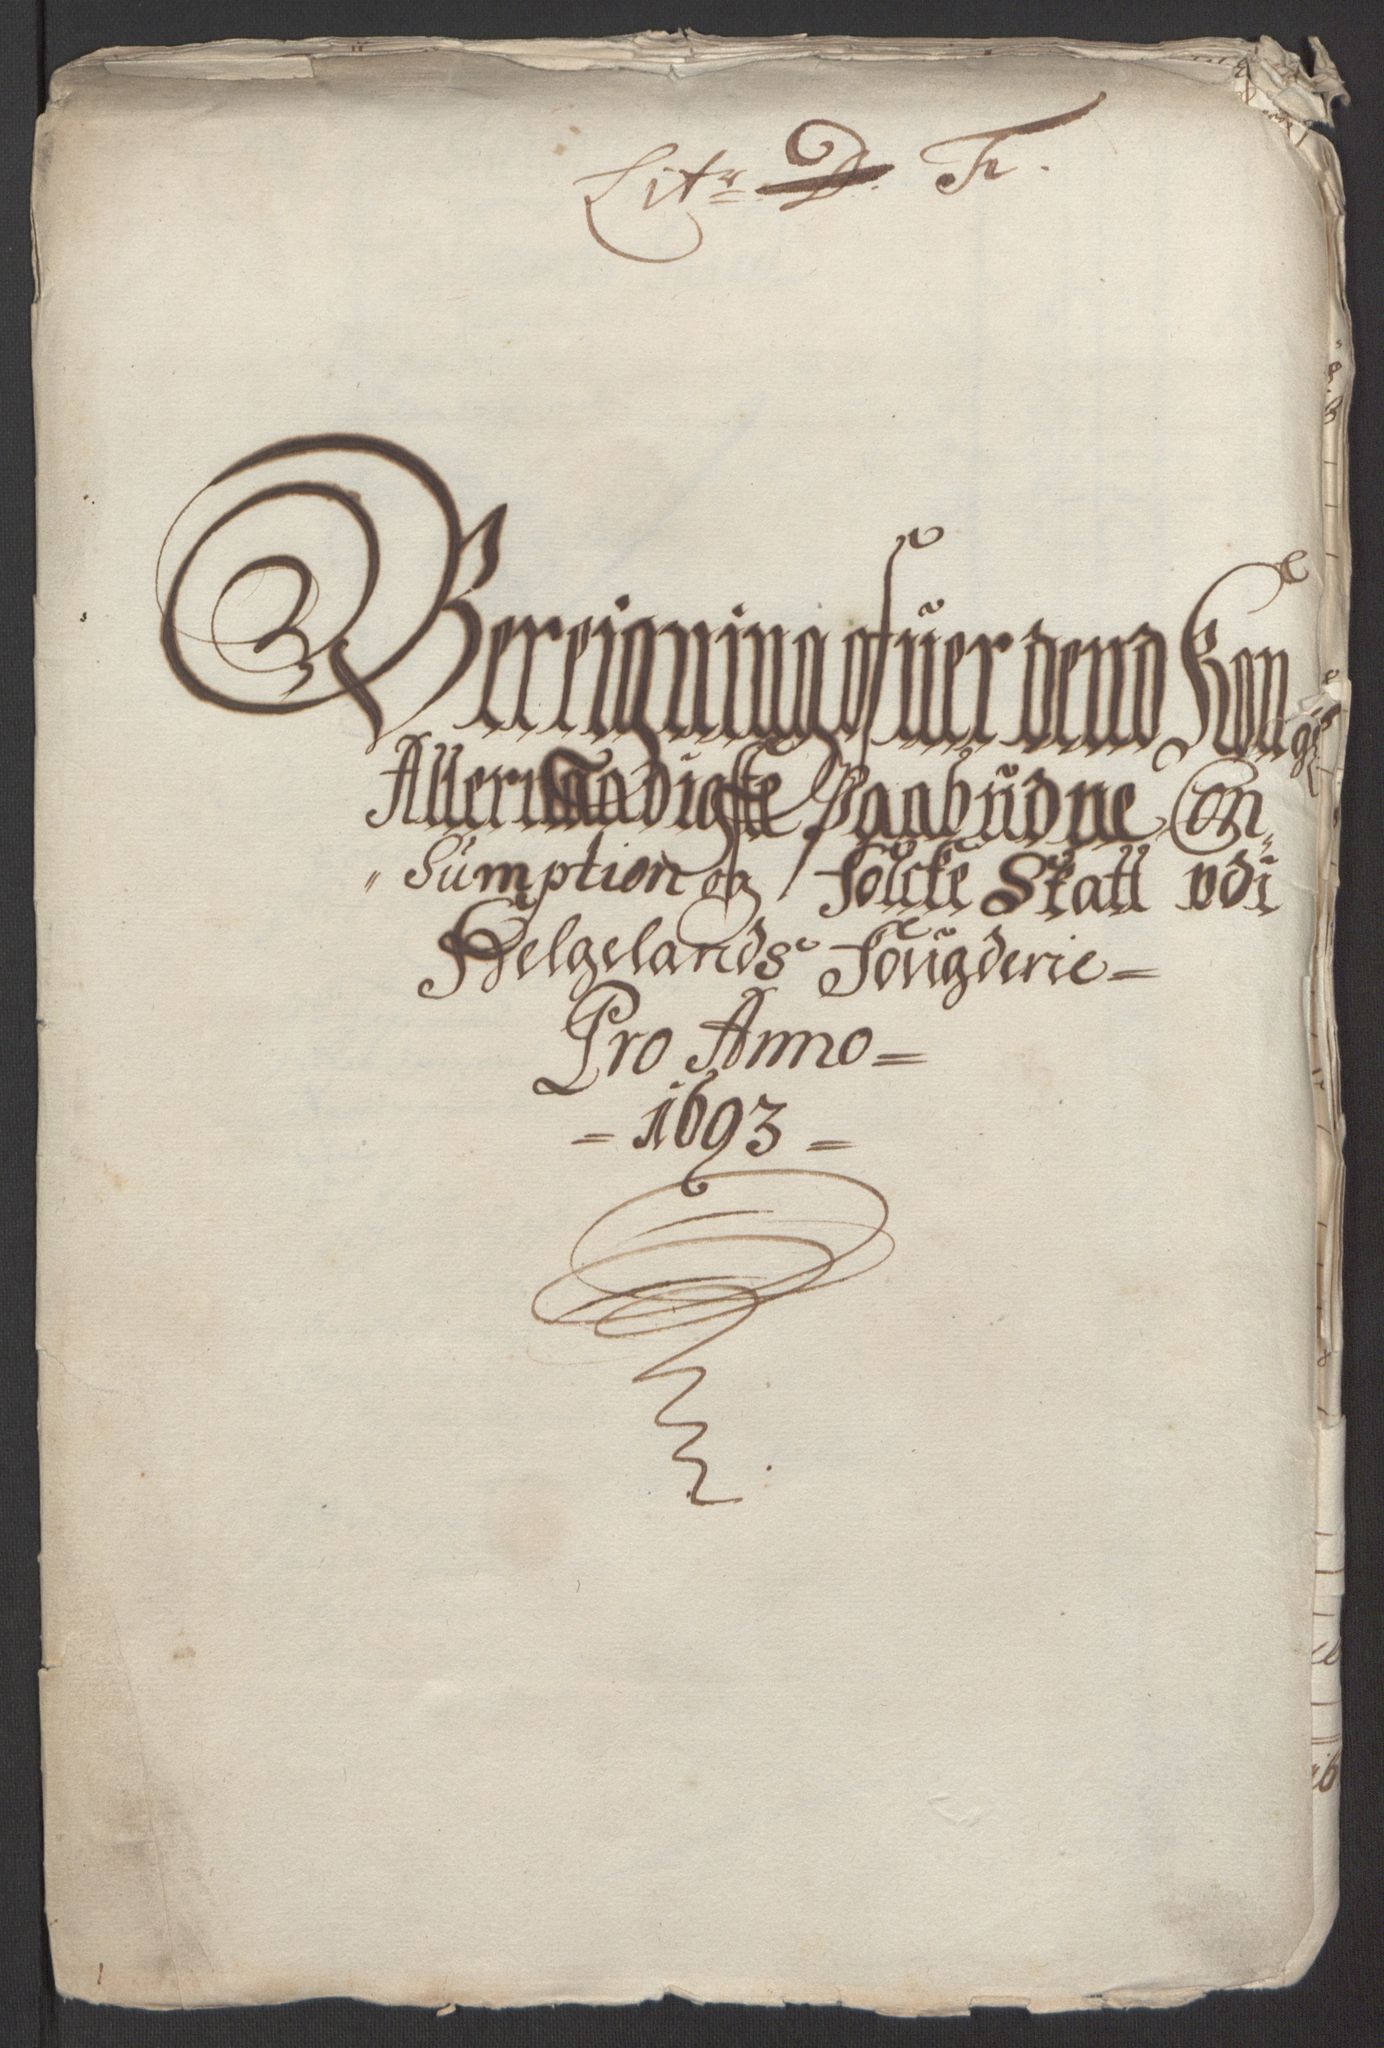 Litr D. F.
Bereigning ofuer dend Kongl
Allernaadigste Paabudne Con„
„Sumption og Folcke Skatt udi
Helgelands Fougderie=
Pro Anno=
=1693=